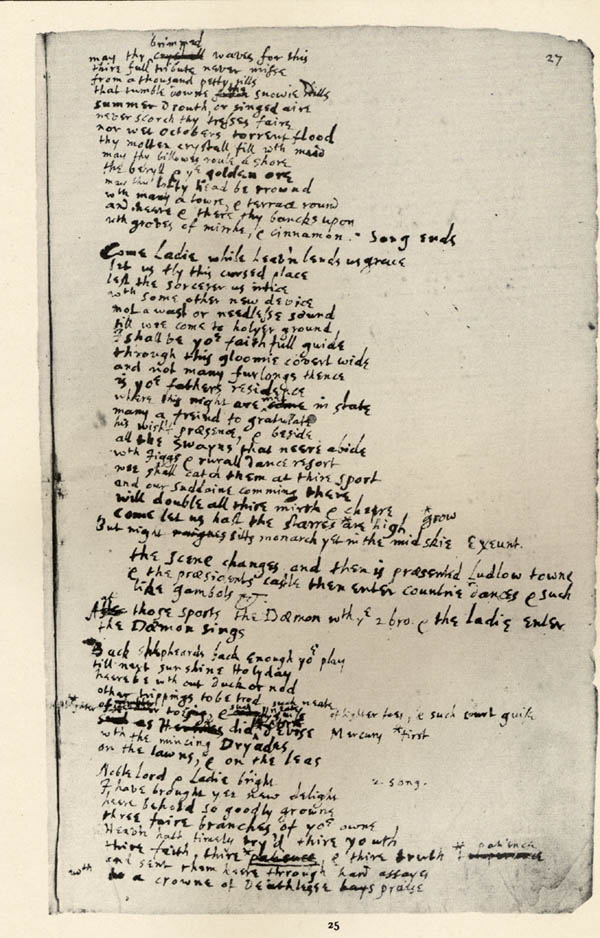 27
brimmed
may thy crystall waves for this
thire full tribute never misse
from a thousand petty rills
that tumble downe from the snowie hills
summer drouth, or singed aire
never scorch thy tresses faire
nor wet Octobers torrent flood
thy molten crystall fill wth mud
may thy billowes roule a shore
the beryll & ye golden ore
may thy lofty head be crownd
wth many a towre, & terrace round
and heere & there thy bancks upon
wth groves of mirrhe, & cinnamon. Song ends
Come Ladie while heav'n lends us grace
let us fly this cursed place
lest the sorcerer us intice
wth some other new device
not a wast or needlesse sound
till wee come to holyer ground
I shall be yor faithfull guide
through this gloomie covert wide
and not many furlongs thence
is yor fathers residence
where this night are met in state
many a freind to gratulate
his wish't præsence, & beside
all the swayns that neere abide
wth Jiggs & rurall dance resort
wee shall catch them at thire sport
and our suddaine comming there
will double all thire mirth & cheere
come let us hast the starres are high grow
But night sitts monarch yet in the mid skie Exeunt.
the scene changes and then is præsented Ludlow towne
& the præsidents castle then enter countrie dances & such
like gambols &c.
At those sports the Dæmon wth ye 2 bro. & the ladie enter
the Dæmon sings
Back shepheards back enough yor play
till next sunshine Holyday
heere be wthout duck or nod
other trippings to be trod
of lighter toes, & such court guise
such as did devise Mercury first
wth the mincing Dryades
on the lawns, & on the leas
2 Song.
Noble Lord & Ladie bright
I have brought yee new delight
heere behold so goodly growne
three faire branches of yor owne
Heav'n hath timely try'd thire youth
thire faith, thire patience, & thire truth patience
and sent them heere through hard assayes
wth a crowne of deathlesse bays praise
25